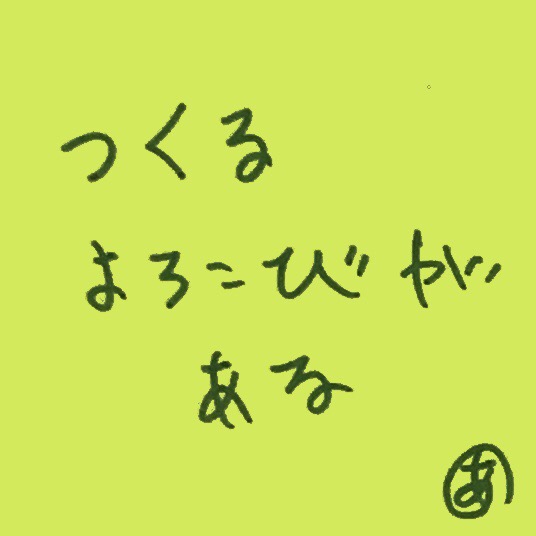 つくる
よろこびが
ある
あ